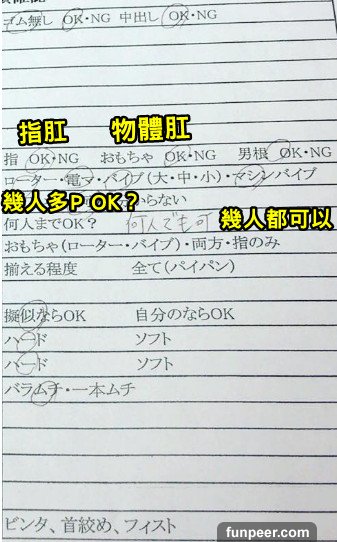 ゴム無し OK・NG 中出し OK・NG
指肛 物體肛
指 OK・NG おもちゃ OK・NG 男根 OK・NG
ローター・電マ・バイブ(大・中・小)・マシンバイブ
幾人多P OK？ からない
何人までOK？ 何人でも可 幾人都可以
おもちゃ(ローター・バイブ)・両方・指のみ
揃える程度 全て(パイパン)
擬似ならOK 自分のならOK
ハード ソフト
ハード ソフト
バラムチ・一本ムチ
ビンタ、首絞め、フィスト
funpeer.com